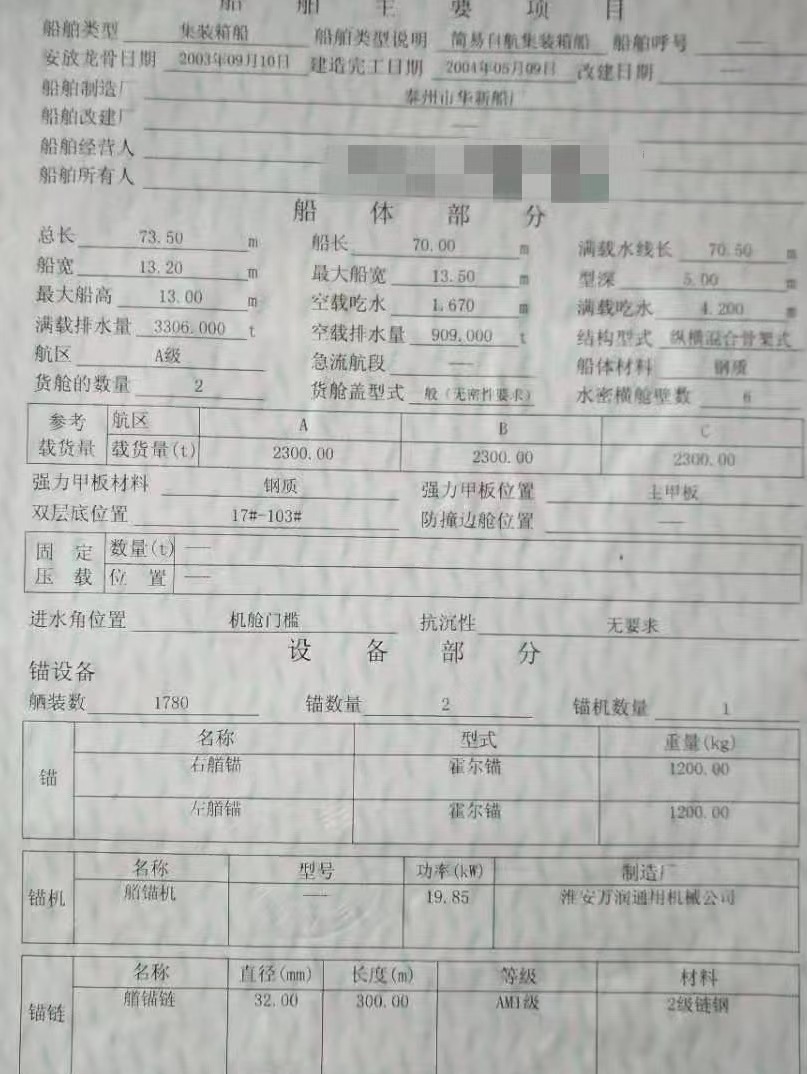 船 舶 主 要 项 目
船舶类型 集装箱船 船舶类型说明 简易自航集装箱船 船舶呼号 ——
安放龙骨日期 2003年09月10日 建造完工日期 2004年05月09日 改建日期 ——
船舶制造厂 泰州市华新船厂
船舶改建厂 ——
船舶经营人
船舶所有人
船 体 部 分
总长 73.50 m 船长 70.00 m 满载水线长 70.50 m
船宽 13.20 m 最大船宽 13.50 m 型深 5.00 m
最大船高 13.00 m 空载吃水 1.670 m 满载吃水 4.200 m
满载排水量 3306.000 t 空载排水量 909.000 t 结构型式 纵横混合骨架式
航区 A级 急流航段 —— 船体材料 钢质
货舱的数量 2 货舱盖型式 般（无密性要求） 水密横舱壁数 6
参考载货量 航区 A B C
载货量(t) 2300.00 2300.00 2300.00
强力甲板材料 钢质 强力甲板位置 主甲板
双层底位置 17#-103# 防撞边舱位置 ——
固定压载 数量(t) ——
位置 ——
进水角位置 机舱门槛 抗沉性 无要求
设 备 部 分
锚设备
舾装数 1780 锚数量 2 锚机数量 1
锚 名称 型式 重量(kg)
右艏锚 霍尔锚 1200.00
左艏锚 霍尔锚 1200.00
锚机 名称 型号 功率(kW) 制造厂
艏锚机 —— 19.85 淮安万润通用机械公司
锚链 名称 直径(mm) 长度(m) 等级 材料
艏锚链 32.00 300.00 AM1级 2级链钢